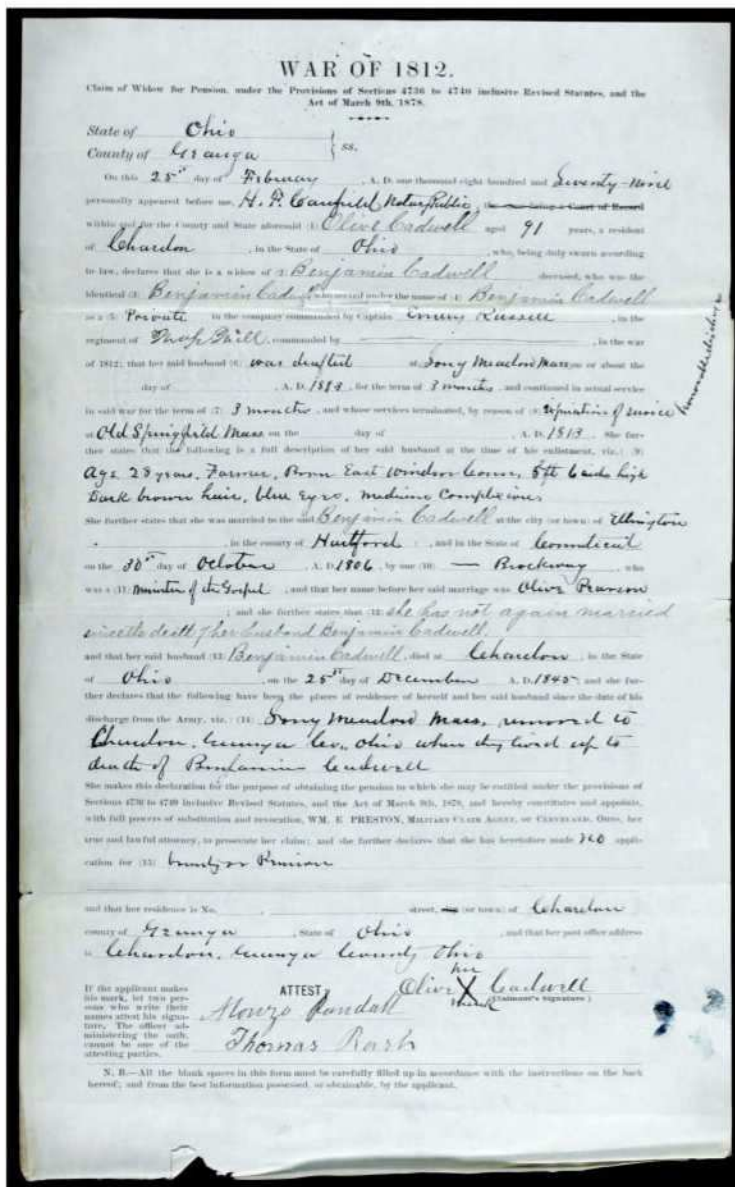 WAR OF 1812.
Claim of Widow for Pension, under the Provisions of Sections 4736 to 4740 inclusive Revised Statutes, and the
Act of March 9th, 1878.
State of Ohio
County of Geauga } ss.
On this 25th day of February, A. D. one thousand eight hundred and Seventy-Nine
personally appeared before me, H. F. Canfield Notary Public, the same being a Court of Record
within and for the County and State aforesaid (1) Olive Cadwell aged 91 years, a resident
of Chardon, in the State of Ohio, who, being duly sworn according
to law, declares that she is a widow of (2) Benjamin Cadwell deceased, who was the
identical (3) Benjamin Cadwell who served under the name of (4) Benjamin Cadwell
as a (5) Private in the company commanded by Captain Emery Russell, in the
regiment of, commanded by, in the war
of 1812; that her said husband (6) was drafted at Long Meadow Mass on or about the
day of, A. D., for the term of 3 months, and continued in actual service
in said war for the term of (7) 3 months, and whose services terminated, by reason of (8) Expiration of service honorable discharge
at Old Springfield Mass on the day of, A. D. 1813. She fur-
ther states that the following is a full description of her said husband at the time of his enlistment, viz.: (9)
Age 28 years, Farmer, Born East Windsor Conn, 5 ft high
Dark brown hair, blue eyes, medium Complexion
She further states that she was married to the said Benjamin Cadwell at the city (or town) of Ellington
, in the county of Hartford, and in the State of Connecticut
on the 30th day of October, A. D. 1806, by one (10) — Brockway, who
was a (11) Minister of the Gospel, and that her name before her said marriage was Olive Pearson
; and she further states that (12) she has not again married
since the death of her husband Benjamin Cadwell.
and that her said husband (13) Benjamin Cadwell, died at Chardon, in the State
of Ohio, on the 25th day of December A. D. 1845 and she fur-
ther declares that the following have been the places of residence of herself and her said husband since the date of his
discharge from the Army, viz.: (14) Long Meadow Mass, removed to
Chardon, Geauga Co., Ohio where they lived up to
death of Benjamin Cadwell
She makes this declaration for the purpose of obtaining the pension to which she may be entitled under the provisions of
Sections 4736 to 4740 inclusive Revised Statutes, and the Act of March 9th, 1878, and hereby constitutes and appoints,
with full powers of substitution and revocation, WM. E. PRESTON, MILITARY CLAIM AGENT, OF CLEVELAND, OHIO, her
true and lawful attorney, to prosecute her claim; and she further declares that she has heretofore made no appli-
cation for (15) bounty or Pension
and that her residence is No. street, city (or town) of Chardon
county of Geauga, State of Ohio, and that her post office address
is Chardon, Geauga County Ohio
If the applicant makes
his mark, let two per-
sons who write their
names attest his signa-
ture. The officer ad-
ministering the oath,
cannot be one of the
attesting parties.
ATTEST,
Olive her X mark Cadwell
(Claimant's signature)
Alonzo Randall
Thomas Rash
N. B.—All the blank spaces in this form must be carefully filled up in accordance with the instructions on the back
hereof; and from the best information possessed, or obtainable, by the applicant.